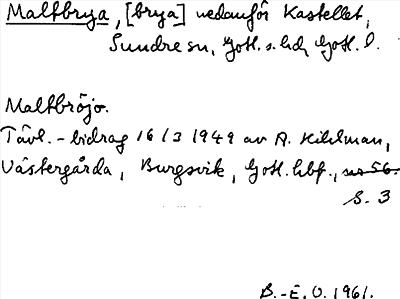 Maltbrya, [brya] nedanför Kastellet,
Sundre sn, Gotl. s. hd, Gotl. l.
Maltbröjo.
Tävl.-bidrag 16/3 1949 av A. Kihlman,
Västergårda, Burgsvik, Gotl. hbf.,
S. 3
B.-E. O. 1961.